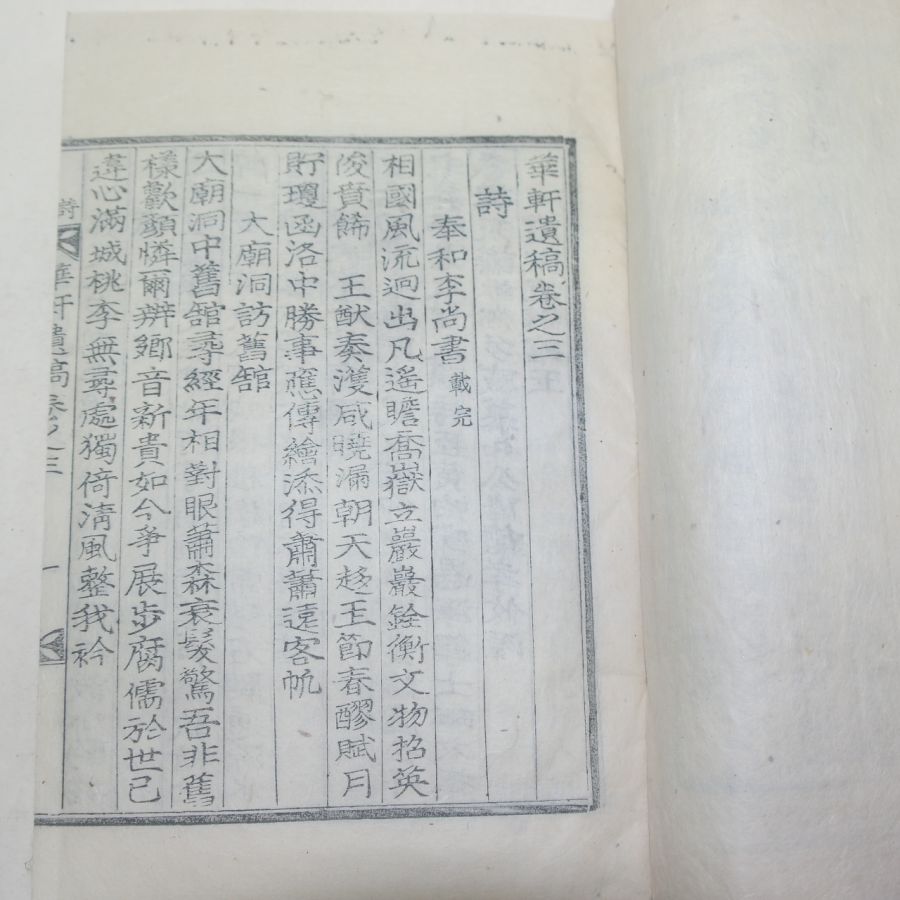 華軒遺稿卷之三
詩
奉和李尚書 載完
相國風流迥出凡遙瞻喬嶽立巖巖銓衡文物招英
俊賁餙 王猷奏濩咸曉漏朝天趍玉節春醪賦月
貯瓊函洛中勝事應傳繪添得肅蕭遠客帆
大廟洞訪舊舘
大廟洞中舊舘尋經年相對眼蕭森衰髮驚吾非舊
樣歡顔憐爾辨鄉音新貴如今爭展步腐儒於世已
違心滿城桃李無尋處獨倚淸風整我衿
詩 華軒遺稿卷之三 一